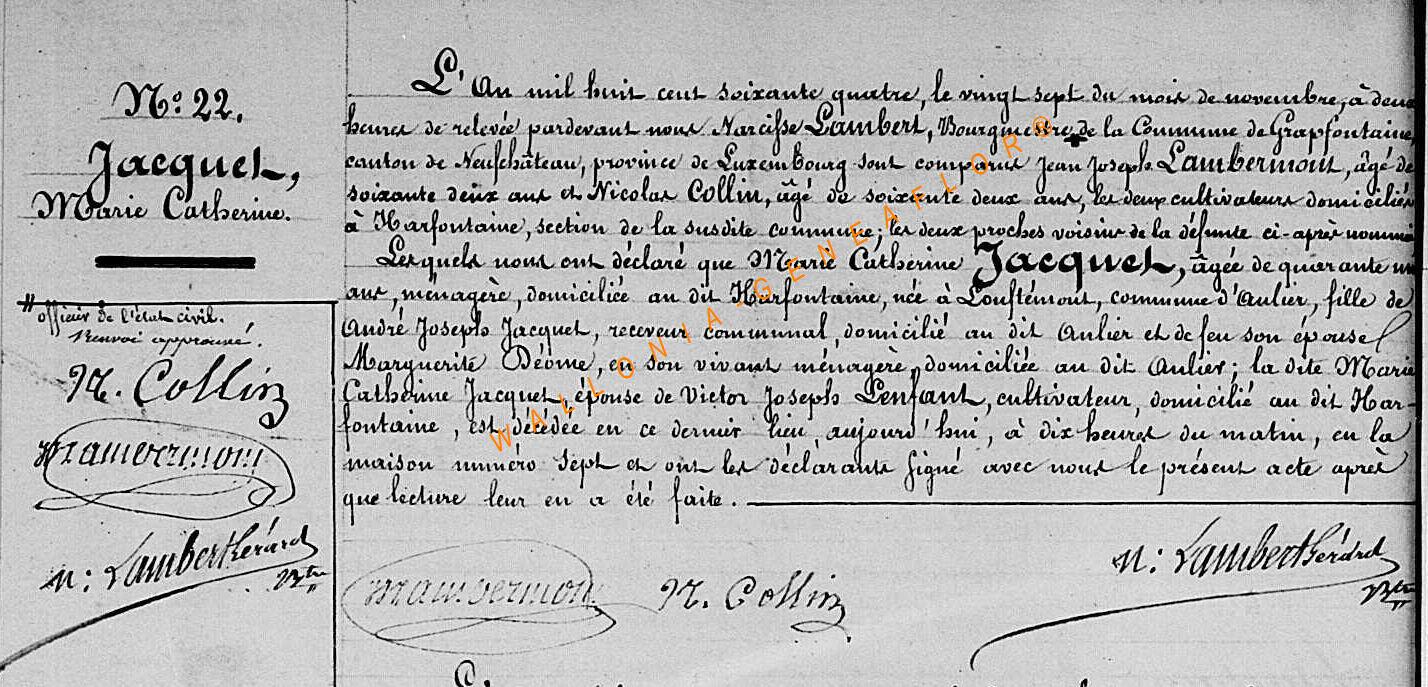 N.° 22.
Jacquet,
Marie Catherine.
officier de l'état civil.
Renvoi approuvé.
N. Collin
n: Lambert Gérard
Btre
L'An mil huit cent soixante quatre, le vingt sept du mois de novembre, à deux
heures de relevée pardevant nous Narcisse Lambert, Bourgmestre, de la Commune de Grapfontaine,
canton de Neufchâteau, province de Luxembourg sont comparus Jean Joseph Lambermont, âgé de
soixante deux ans et Nicolas Collin, âgé de soixante deux ans, les deux cultivateurs domiciliés
à Harfontaine, section de la susdite commune; les deux proches voisins de la défunte ci-après nommée
Lesquels nous ont déclaré que Marie Catherine Jacquet, âgée de quarante un
ans, ménagère, domiciliée au dit Harfontaine, née à Louftémont, commune d'Anlier, fille de
André Joseph Jacquet, receveur communal, domicilié au dit Anlier et de feu son épouse
Marguerite Déome, en son vivant ménagère, domiciliée au dit Anlier; la dite Marie
Catherine Jacquet, épouse de Victor Joseph Lenfant, cultivateur, domicilié au dit Har-
fontaine, est décédée en ce dernier lieu, aujourd'hui, à dix heures du matin, en la
maison numéro sept et ont les déclarants signé avec nous le présent acte après
que lecture leur en a été faite.
N. Collin
n: Lambert Gérard
Btre
WALLONIA-GENEAFLOR®